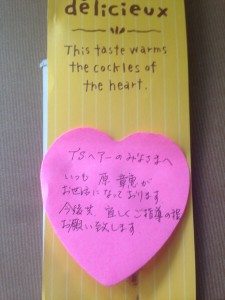 délicieux
This taste warms
the cockles of
the heart.
T'Sヘアーのみなさまへ
いつも 原 音恵が
お世話になっております
今後共 宜しくご指導の程
お願い致します